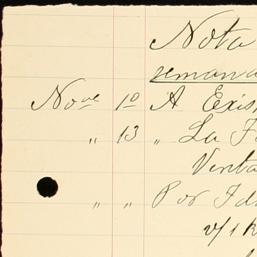 Nota
semana
Nov.e 10 A Exis
" 13 " La F
Venta
" " Por Id
v/ i R